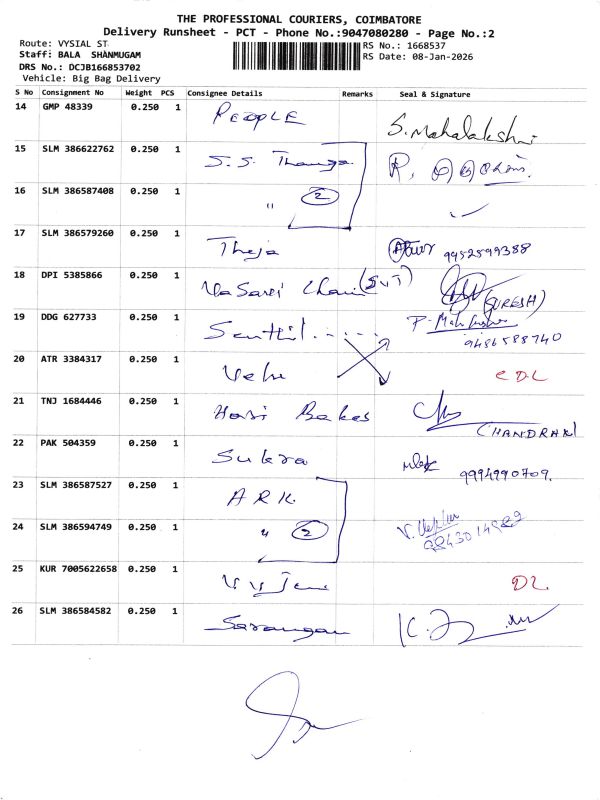 THE PROFESSIONAL COURIERS, COIMBATORE
Delivery Runsheet - PCT - Phone No.:9047080280 - Page No.:2
Route: VYSIAL ST
RS No.: 1668537
Staff: BALA SHANMUGAM
RS Date: 08-Jan-2026
DRS No.: DCJB166853702
Vehicle: Big Bag Delivery
S No Consignment No Weight PCS Consignee Details Remarks Seal & Signature
14 GMP 48339 0.250 1 PEOPLE S. Mahalakshmi
15 SLM 386622762 0.250 1 S.S. Thanga R.
16 SLM 386587408 0.250 1 " 2
17 SLM 386579260 0.250 1 Theja 9952599388
18 DPI 5385866 0.250 1 Vasavi Chain (SVT) (SURESH)
19 DDG 627733 0.250 1 Senthil..... P. 9486588740
20 ATR 3384317 0.250 1 Velu CDL
21 TNJ 1684446 0.250 1 Hari Bakes CHANDRAKI
22 PAK 504359 0.250 1 Sukra 9994990709.
23 SLM 386587527 0.250 1 ARK
24 SLM 386594749 0.250 1 " 2 V.
25 KUR 7005622658 0.250 1 V V DL
26 SLM 386584582 0.250 1 Sarangan K.